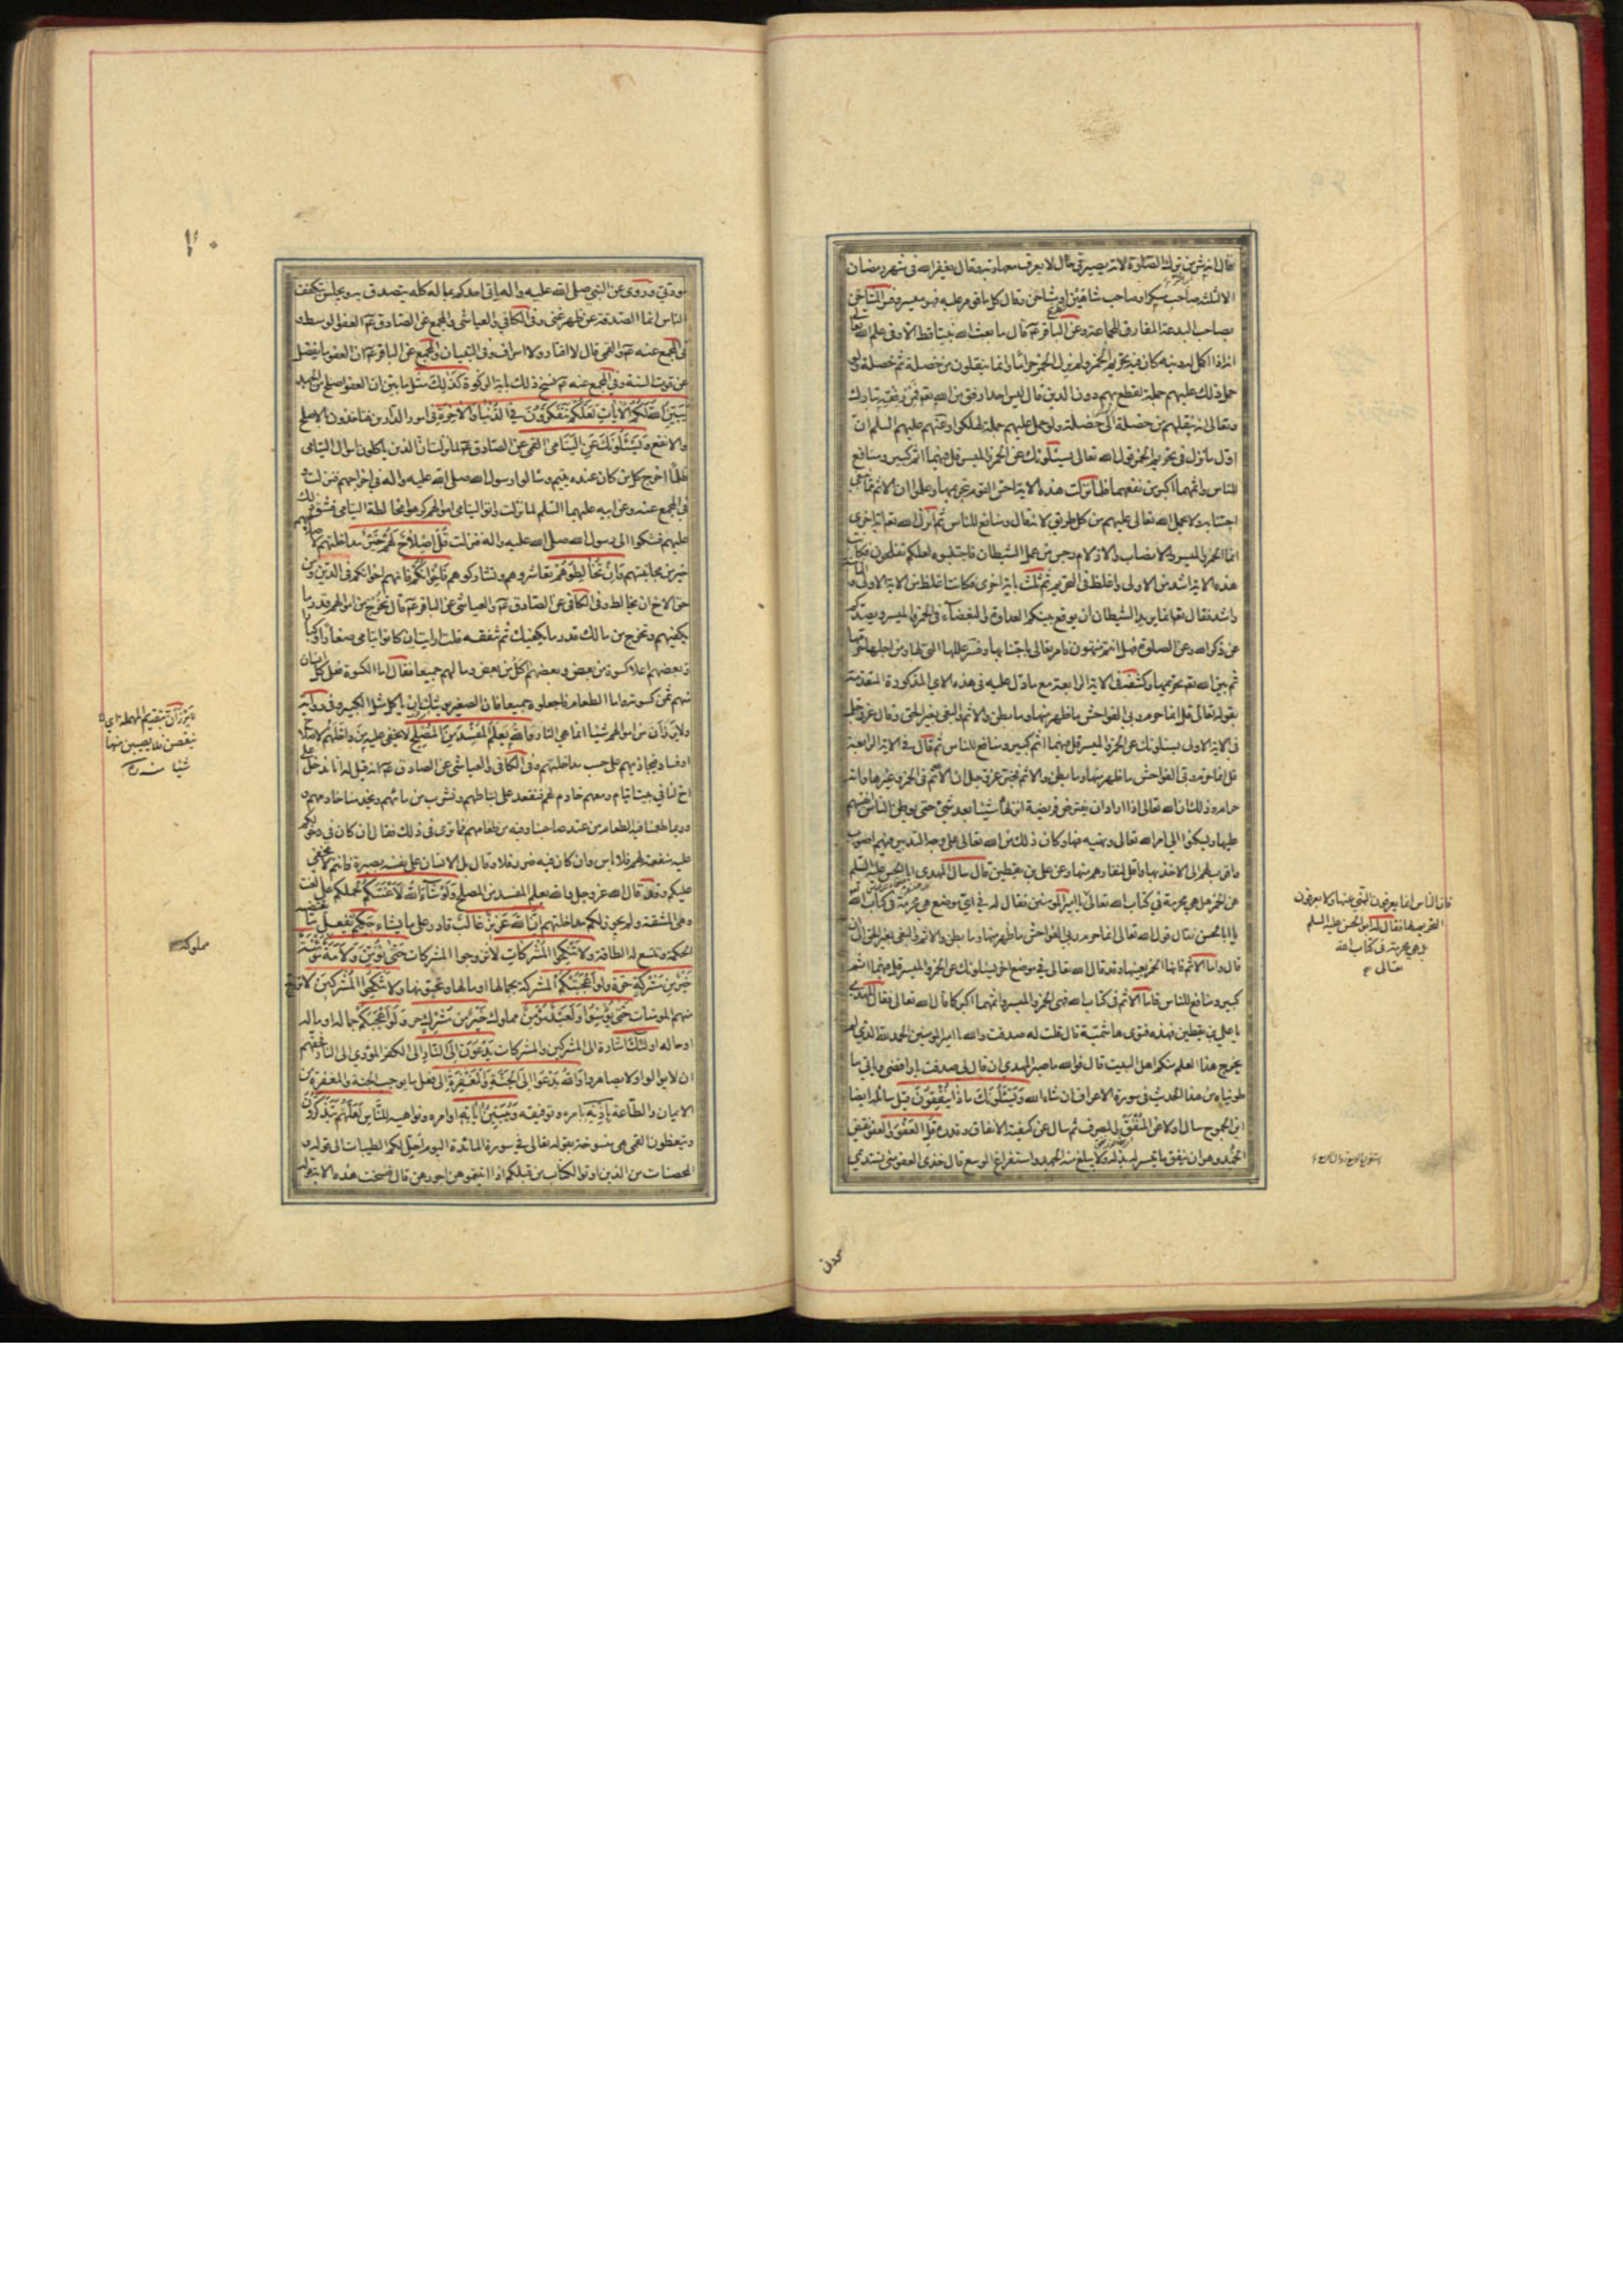 فقال انه شر من ترك الصلوة لانه يصير في حال لا يعرف معها ربه وقال يغفر الله في شهر رمضان
الا لثلثة صاحب مسكر او صاحب شاهين او مشاحن وقال كل ما قومر عليه فهو ميسر وفسر المشاحن
بصاحب البدعة المفارق للجماعة وعن الباقر عم قال ما بعث الله نبيا قط الا وفي علم الله تعالى
انه اذا اكمل له دينه كان فيه تحريم الخمر ولم يزل الخمر حراما وانما ينقلون من خصلة ثم خصلة ولو
حمل ذلك عليهم جملة لقطع بهم دون الدين قال ليس احد ارفق من الله تعم فمن رفقه تبارك
وتعالى انه ينقلهم من خصلة الى خصلة ولو حمل عليهم جملة لهلكوا وعنهم عليهم السلم ان
اول ما نزل في تحريم الخمر قول الله تعالى يسئلونك عن الخمر والميسر قل فيهما اثم كبير ومنافع
للناس واثمهما اكبر من نفعهما فلما نزلت هذه الاية احس القوم بتحريمها وعلموا ان الاثم مما يجب
اجتنابه ولا يحمل الله تعالى عليهم من كل طريق لانه قال ومنافع للناس ثم انزل الله تعم اية اخرى
انما الخمر والميسر والانصاب والازلام رجس من عمل الشيطان فاجتنبوه لعلكم تفلحون فكانت
هذه الاية اشد من الاولى واغلظ في التحريم ثم ثلث باية اخرى فكانت اغلظ من الاية الاولى والثانية
واشد فقال تعم انما يريد الشيطان ان يوقع بينكم العداوة والبغضاء في الخمر والميسر ويصدكم
عن ذكر الله وعن الصلوة فهل انتم منتهون فامر تعالى باجتنابها وفسر عللها التي لها ومن اجلها حرمها
ثم بين الله تعم تحريمها وكشفه في الاية الرابعة مع ما دل عليه في هذه الاي المذكورة المتقدمة
بقوله تعالى قل انما حرم ربي الفواحش ما ظهر منها وما بطن والاثم والبغي بغير الحق وقال عز وجل
في الاية الاولى يسئلونك عن الخمر والميسر قل فيهما اثم كبير ومنافع للناس ثم قال في الاية الرابعة
قل انما حرم ربي الفواحش ما ظهر منها وما بطن والاثم فخبر عز وجل ان الاثم في الخمر وغيرها وانه
حرام وذلك ان الله تعالى اذا اراد ان يفترض فريضة انزلها شيئا بعد شيء حتى يوطن الناس انفسهم
عليها ويسكنوا الى امر الله تعالى ونهيه فيها وكان ذلك من الله تعالى على وجه التدبير فيهم اصوب
واقرب لهم الى الاخذ بها واقل لنفارهم منها وعن علي بن يقطين قال سال المهدي ابا الحسن عليه السلم
عن الخمر هل هي محرمة في كتاب الله تعالى يا امير المومنين فقال له في اي موضع هي محرمة في كتاب الله
يا ابا الحسن فقال قول الله تعالى انما حرم ربي الفواحش ما ظهر منها وما بطن والاثم والبغي بغير الحق الى ان
قال واما الاثم فانها الخمر بعينها وقد قال الله تعالى في موضع اخر يسئلونك عن الخمر والميسر قل فيهما اثم
كبير ومنافع للناس فاما الاثم في كتاب الله فهي الخمر والميسر واثمهما اكبر كما قال الله تعالى فقال المهدي
يا علي بن يقطين فهذه فتوى هاشمية قال قلت له صدقت والله يا امير المومنين الحمد لله الذي لم
يخرج هذا العلم منكم اهل البيت قال فوالله ما صبر المهدي ان قال لي صدقت يا رافضي وياتي ما
طويناه من هذا الحديث في سورة الاعراف ان شاء الله ويسئلونك ماذا ينفقون قيل سائله ايضا
ابن الجموح سال اولا عن المنفق والمصرف ثم سال عن كيفية الانفاق وقدره قل العفو والعفو نقيض
الجهد وهو ان ينفق ما تيسر له بذله ولا يبلغ منه الجهد واستفراغ الوسع قال خذي العفو مني تستديمي
فان الناس انما يعرفون النهي عنها ولا يعرفون
التحريم لها فقال له ابو الحسن عليه السلم
بل هي محرمة في كتاب الله
تعالى
٧٠
مودتي وروي عن النبي صلى الله عليه واله ياتي احدكم بماله كله يتصدق به ويجلس يتكفف
الناس انما الصدقة عن ظهر غنى وفي الكافي والعياشي والمجمع عن الصادق عم العفو الوسط و
في المجمع عنه عم والقمي قال لا اقتار ولا اسراف وفي التبيان والمجمع عن الباقر عم ان العفو ما يفضل
عن قوت السنة وفي المجمع عنه عم نسخ ذلك باية الزكوة كذلك مثل ما بين ان العفو اصلح من الجهد
يبين الله لكم الايات لعلكم تتفكرون في الدنيا والاخرة في امور الدارين فتاخذون بالاصلح
والانفع ويسئلونك عن اليتامى القمي عن الصادق عم لما نزلت ان الذين ياكلون اموال اليتامى
ظلما اخرج كل من كان عنده يتيم وسالوا رسول الله صلى الله عليه واله في اخراجهم فنزلت و
في المجمع عنه وعن ابيه عليهما السلم لما نزلت واتوا اليتامى اموالهم كرهوا مخالطة اليتامى فشق ذلك
عليهم فشكوا الى رسول الله صلى الله عليه واله فنزلت قل اصلاح لهم خير مداخلتهم لاصلاحهم
خير من مجانبتهم وان تخالطوهم تعاشروهم وتشاركوهم فاخوانكم فانهم اخوانكم في الدين ومن
حق الاخ ان يخالط وفي الكافي عن الصادق عم والعياشي عن الباقر عم قال تخرج من اموالهم قدر ما
يكفيهم وتخرج من مالك قدر ما يكفيك ثم تنفقه قلت ارايت ان كانوا يتامى صغارا وكبارا
وبعضهم اعلا كسوة من بعض وبعضهم اكل من بعض ومالهم جميعا فقال اما الكسوة فعلى كل انسان
منهم ثمن كسوته واما الطعام فاجعلوه جميعا فان الصغير يوشك ان ياكل مثل الكبير وفي رواية
ولا يرزأن من اموالهم شيئا انما هي النار والله يعلم المفسد من المصلح لا يخفى عليه من داخلهم لاصلاح
او فساد فيجازيهم على حسب مداخلتهم وفي الكافي والعياشي عن الصادق عم انه قيل له انا ندخل على
اخ لنا في بيت ايتام ومعهم خادم لهم فنقعد على بساطهم ونشرب من مائهم ويخدمنا خادمهم و
وربما طعمنا فيه الطعام من عند صاحبنا وفيه من طعامهم فما ترى في ذلك فقال ان كان في دخولكم
عليه منفعة لهم فلا باس وان كان فيه ضرر فلا وقال بل الانسان على نفسه بصيرة فانتم لا يخفى
عليكم وقد قال الله عز وجل والله يعلم المفسد من المصلح ولو شاء الله لاعنتكم لحملكم على العنت
وهي المشقة ولم يجوز لكم مداخلتهم ان الله عزيز غالب قادر على ما يشاء حكيم يفعل ما تقتضيه
الحكمة وتتسع له الطاقة ولا تنكحوا المشركات لا تزوجوا المشركات حتى يؤمن ولامة مؤمنة
خير من مشركة حرة ولو اعجبتكم المشركة بجمالها او مالها وتحبونها ولا تنكحوا المشركين لا تزوجوا
منهم المومنات حتى يؤمنوا ولعبد مؤمن مملوك خير من مشرك حر ولو اعجبكم جماله او ماله
او حاله اولئك اشارة الى المشركين والمشركات يدعون الى النار الى الكفر المؤدي الى النار فحقهم
ان لا يوالوا ولا يصاهروا والله يدعوا الى الجنة والمغفرة الى فعل ما يوجب الجنة والمغفرة من
الايمان والطاعة باذنه بامره وتوفيقه ويبين اياته اوامره ونواهيه للناس لعلهم يتذكرون
ويتعظون القمي هي منسوخة بقوله تعالى في سورة المائدة اليوم احل لكم الطيبات الى قوله و
المحصنات من الذين اوتوا الكتاب من قبلكم اذا اتيتموهن اجورهن قال فنسخت هذه الاية قوله
يرزأن بتقديم المهملة اي
ينقصن ويصيبن منها
شيئا منه ره
مملوكة